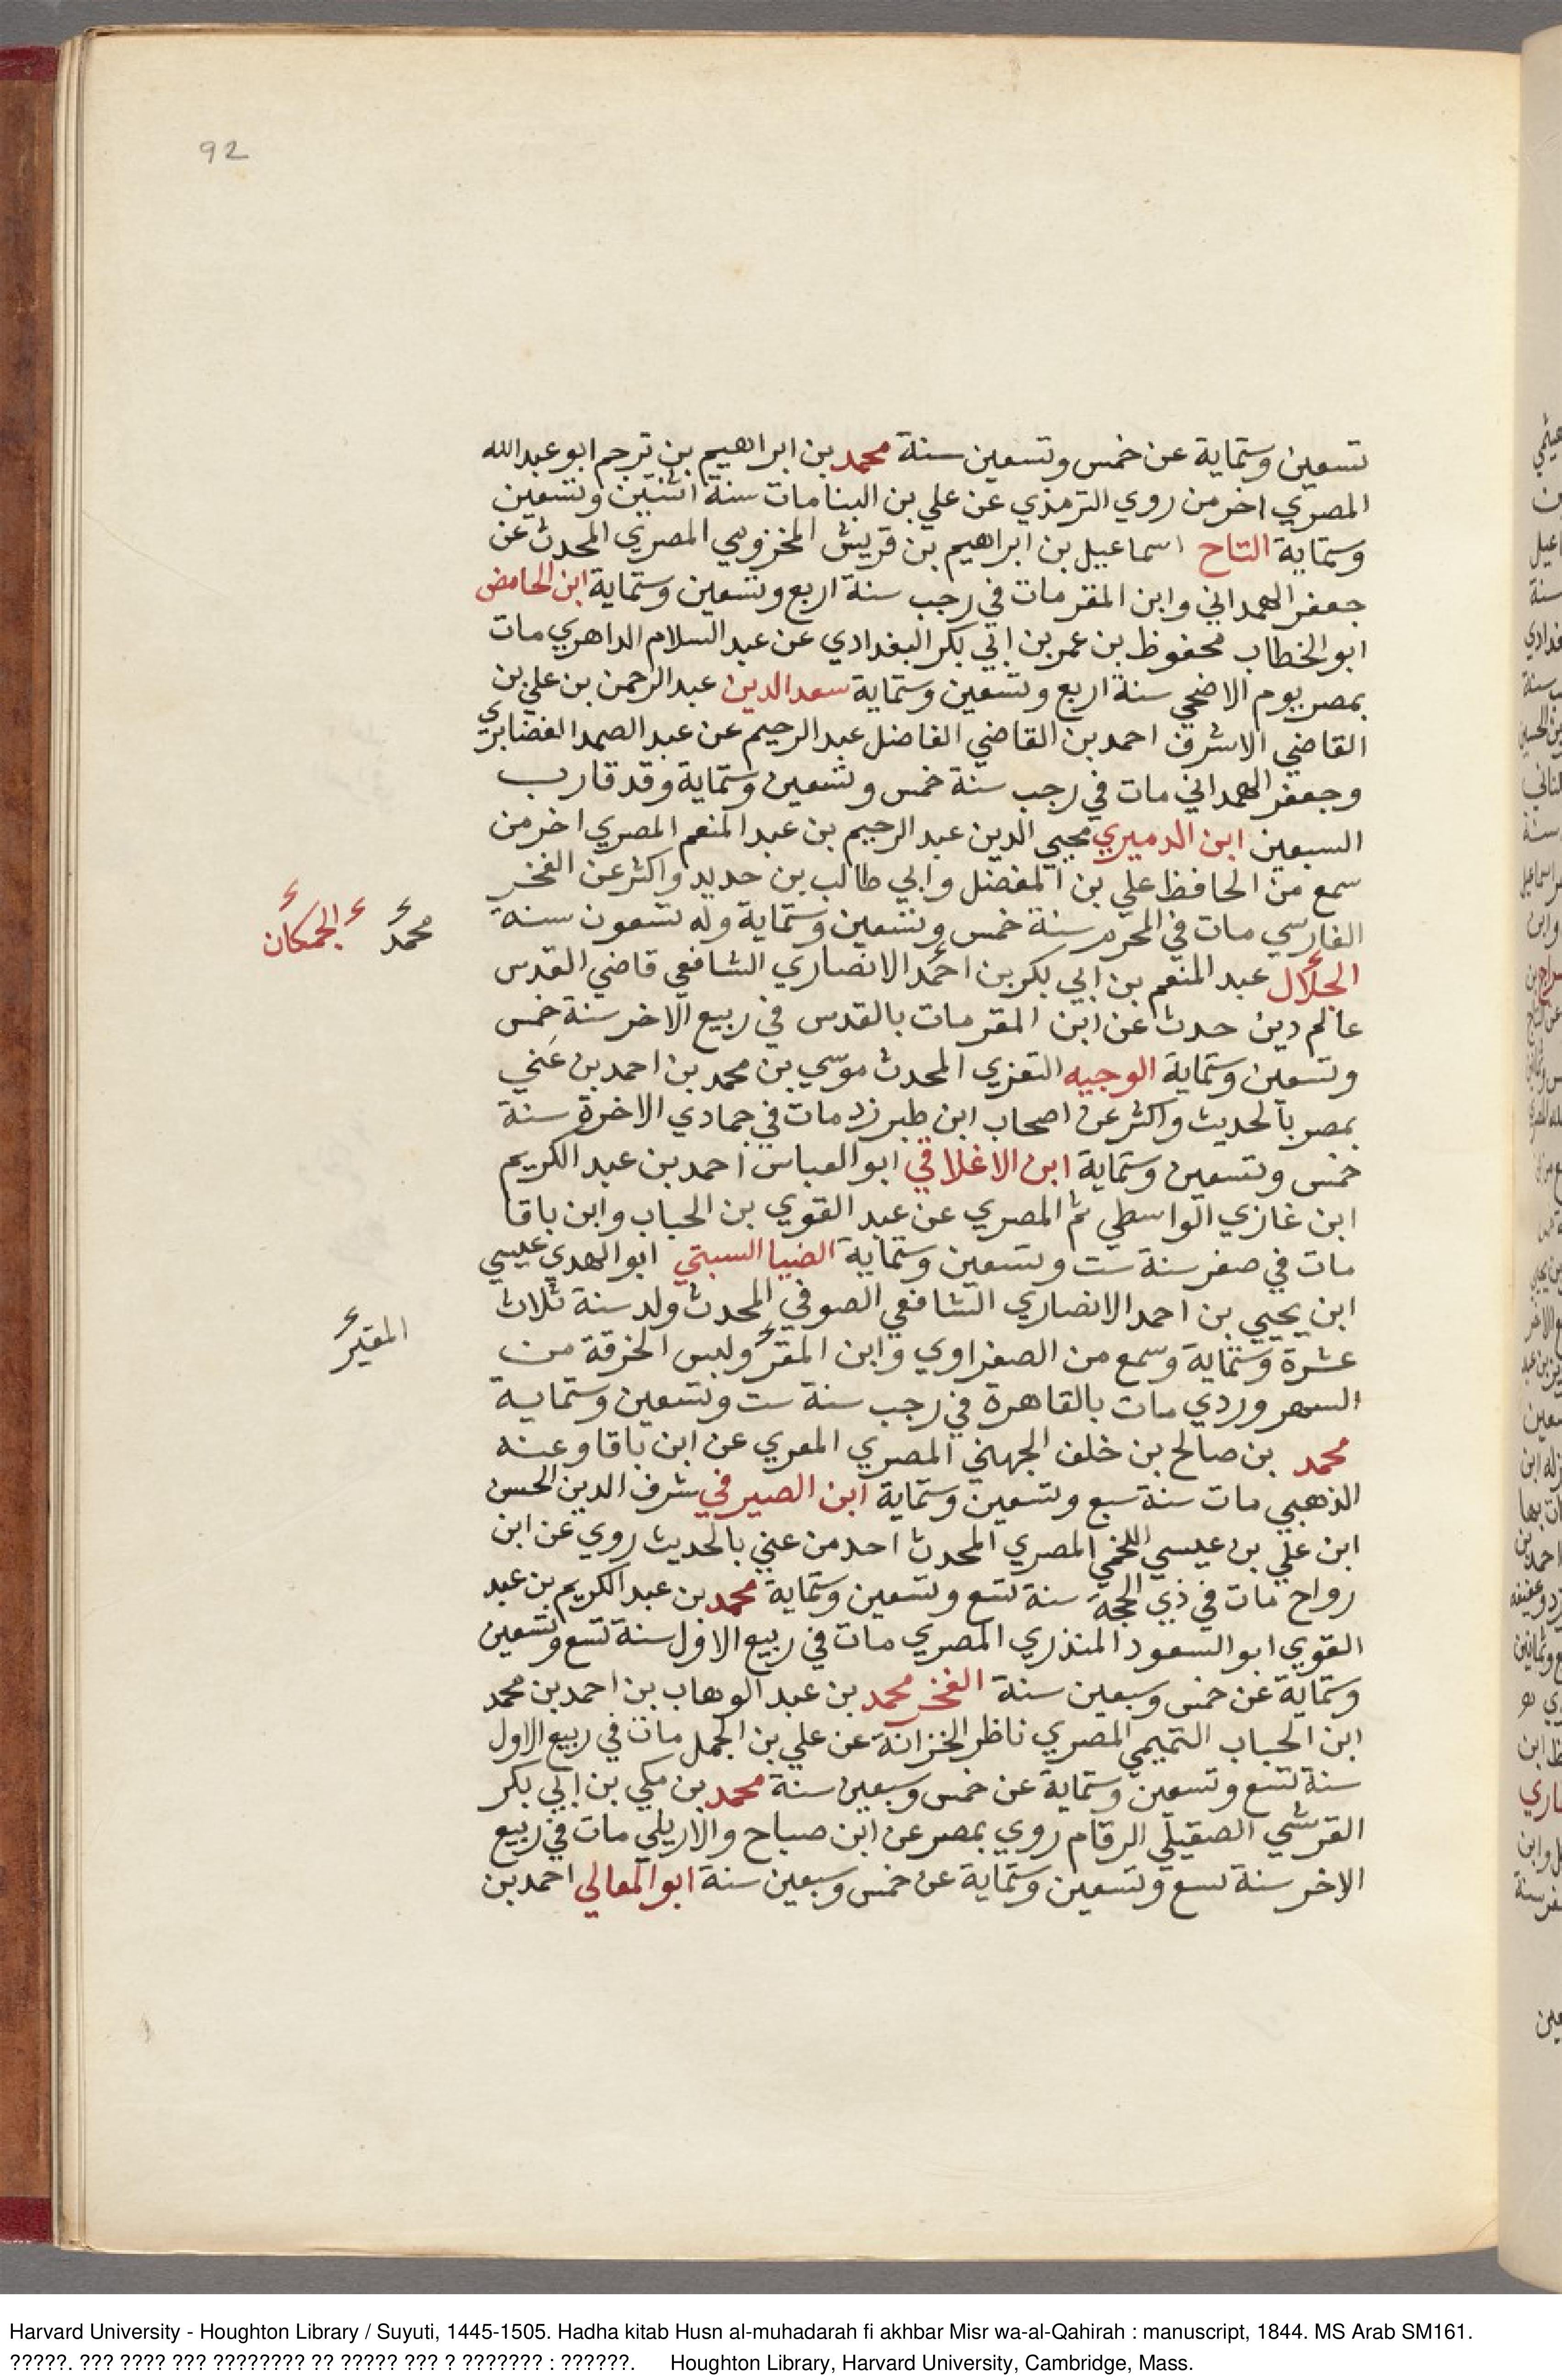 92
تسعين وستماية عن خمس وتسعين سنة محمد بن ابراهيم بن ترجم ابو عبد الله
المصري اخر من روي الترمذي عن علي بن البنا مات سنة اثنين وتسعين
وستماية التاج اسماعيل بن ابراهيم بن قريش المخزومي المصري المحدث عن
جعفر الهمداني وابن المقر مات في رجب سنة اربع وتسعين وستماية ابن الحامض
ابو الخطاب محفوظ بن عمر بن ابي بكر البغدادي عن عبد السلام الداهري مات
بمصر يوم الاضحي سنة اربع وتسعين وستماية سعد الدين عبد الرحمن بن علي بن
القاضي الاشرف احمد بن القاضي الفاضل عبد الرحيم عن عبد الصمد الغضايري
وجعفر الهمداني مات في رجب سنة خمس وتسعين وستماية وقد قارب
السبعين ابن الدميري محيي الدين عبد الرحيم بن عبد المنعم المصري اخر من
سمع من الحافظ علي بن المفضل وابي طالب بن حديد واكثر عن الفخر
الفارسي مات في المحرم سنة خمس وتسعين وستماية وله تسعون سنة
محمد الجمكان
الجلال عبد المنعم بن ابي بكر بن احمد الانصاري الشافعي قاضي القدس
عالم دين حدث عن ابن المقر مات بالقدس في ربيع الاخر سنة خمس
وتسعين وستماية الوجيه التعزي المحدث موسي بن محمد بن احمد بن عني
بمصر بالحديث واكثر عن اصحاب ابن طبرزد مات في جمادي الاخرة سنة
خمس وتسعين وستماية ابن الاغلاقي ابو العباس احمد بن عبد الكريم
ابن غازي الواسطي ثم المصري عن عبد القوي بن الحباب وابن باقا
مات في صفر سنة ست وتسعين وستماية الضيا السبتي ابو الهدي عيسي
ابن يحيي بن احمد الانصاري الشافعي الصوفي المحدث ولد سنة ثلاث
عشرة وستماية وسمع من الصفراوي وابن المقر ولبس الخرقة من
المقير
السهروردي مات بالقاهرة في رجب سنة ست وتسعين وستماية
محمد بن صالح بن خلف الجهني المصري المعري عن ابن باقا وعنه
الذهبي مات سنة سبع وتسعين وستماية ابن الصيرفي شرف الدين الحسن
ابن علي بن عيسي اللخمي المصري المحدث احد من عني بالحديث روي عن ابن
رواح مات في ذي الحجة سنة تسع وتسعين وستماية محمد بن عبد الكريم بن عبد
القوي ابو السعود المنذري المصري مات في ربيع الاول سنة تسع وتسعين
وستماية عن خمس وسبعين سنة الفخر محمد بن عبد الوهاب بن احمد بن محمد
ابن الحباب التميمي المصري ناظر الخزانة عن علي بن الجمل مات في ربيع الاول
سنة تسع وتسعين وستماية عن خمس وسبعين سنة محمد بن مكي بن ابي بكر
القرشي الصقيلي الرقام روي بمصر عن ابن صباح والاربلي مات في ربيع
الاخر سنة تسع وتسعين وستماية عن خمس وسبعين سنة ابو المعالي احمد بن
Harvard University - Houghton Library / Suyuti, 1445-1505. Hadha kitab Husn al-muhadarah fi akhbar Misr wa-al-Qahirah : manuscript, 1844. MS Arab SM161.
?????. ??? ???? ??? ???????? ?? ????? ??? ? ??????? : ??????. Houghton Library, Harvard University, Cambridge, Mass.